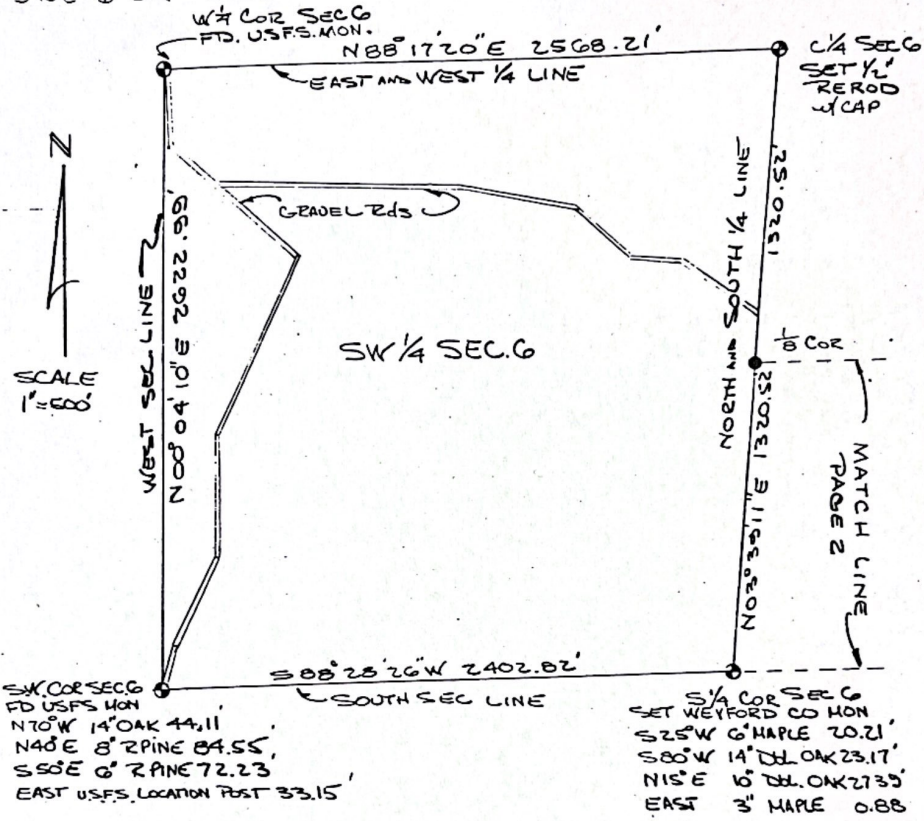 W¼ COR SEC 6
FD. USFS. MON.
N88°17'20"E 2568.21'
EAST AND WEST ¼ LINE
C¼ SEC 6
SET ½"
REROD
W/ CAP
N
SCALE
1"=500'
WEST SEC. LINE
N00°04'10"E 2622.99'
GRAVEL Rds
SW ¼ SEC. 6
NORTH AND SOUTH ¼ LINE
1320.25'
⅛ COR
N03°39'11"E 1320.25'
MATCH LINE
PAGE 2
S88°28'26"W 2402.82'
SOUTH SEC LINE
SW. COR SEC 6
FD USFS MON
N70°W 14" OAK 44.11'
N40°E 8" R PINE 84.55'
S50°E 6" R PINE 72.23'
EAST USFS. LOCATION POST 33.15'
S¼ COR SEC 6
SET WEXFORD CO MON
S25°W 6" MAPLE 20.21'
S80°W 14" DBL. OAK 23.17'
N15°E 10" DBL. OAK 27.39'
EAST 3" MAPLE 0.88